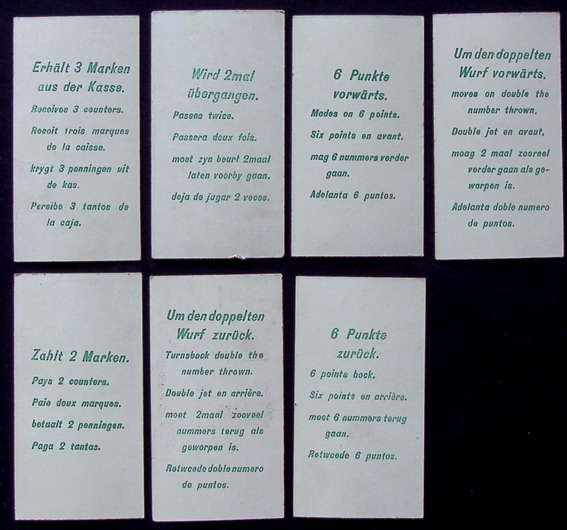 Erhält 3 Marken
aus der Kasse.
Receives 3 counters.
Recoit trois marques
de la caisse.
krygt 3 penningen uit
de kas.
Pereibe 3 tantos de
la caja.
Wird 2mal
übergangen.
Passes twice.
Passera deux fois.
moet zyn beurt 2maal
laten voorby gaan.
deja de jugar 2 veces.
6 Punkte
vorwärts.
Modes on 6 points.
Six points en avant.
mag 6 nummers verder
gaan.
Adelanta 6 puntos.
Um den doppelten
Wurf vorwärts.
moves on double the
number thrown.
Double jet en avaut,
moag 2 maal zooreel
verder gaan als ge-
worpen is.
Adelanta doble numero
de puntos.
Zahlt 2 Marken.
Pays 2 counters.
Paie doux marques.
betaalt 2 penningen.
Paga 2 tantas.
Um den doppelten
Wurf zurück.
Turnsback double the
number thrown.
Double jet en arrière.
moet 2maal zooveel
nummers terug als
geworpen is.
Retwcede doble numero
de puntos.
6 Punkte
zurück.
6 points back.
Six points en arrière.
moet 6 nummers terug
gaan.
Retwcede 6 puntos.